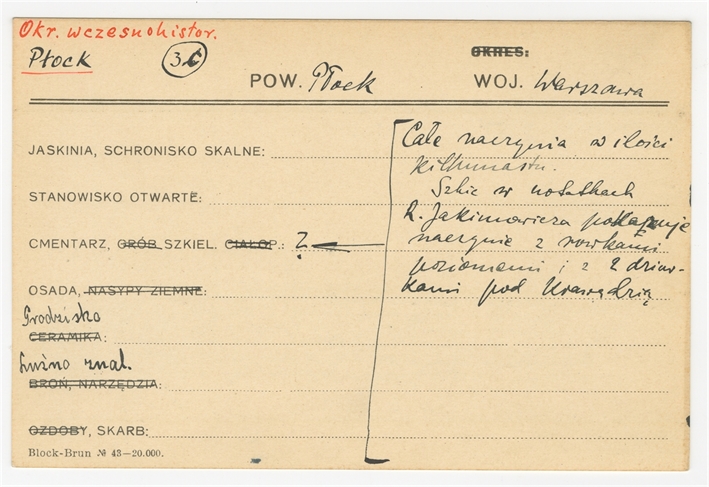 Okr. wczesnohistor.
Płock 3c OKRES:
POW. Płock WOJ. Warszawa
JASKINIA, SCHRONISKO SKALNE:
STANOWISKO OTWARTE:
CMENTARZ, GRÓB SZKIEL. CIAŁOP.: ?
OSADA, NASYPY ZIEMNE:
Grodzisko
CERAMIKA:
Luźno znal.
BROŃ, NARZĘDZIA:
OZDOBY, SKARB:
Block-Brun № 43–20.000.
Całe naczynia w ilości
kilkunastu.
Szkic w notatkach
R. Jakimowicza pokazuje
naczynie z rowkami
poziomemi i z 2 dziur-
kami pod krawędzią